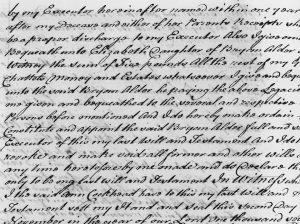 by my Executor hereinafter named within one year
after my Decease and either of her Parents Receipts shall
be a proper discharge to my Executor Also I give and
bequeath unto Elizabeth Daughter of Bryan Alder
the sum of Two pounds All the rest of my
Chattels Money and Estates whatsoever I give and beq
unto the said Bryan Alder he paying the above Legacies
me given and bequeathed to the several and respective
Persons before mentioned And I do hereby make ordain
Constitute and appoint the said Bryan Alder full and
Executor of this my last Will and Testament And I do
revoke and make void all former and other wills
any time heretofore by me made and do declare th
only to be my last will and Testament In Witness
I the said Cockband have to this my last will and
Testament sett my Hand and seal this Second Day
November in the year of our Lord one thousand